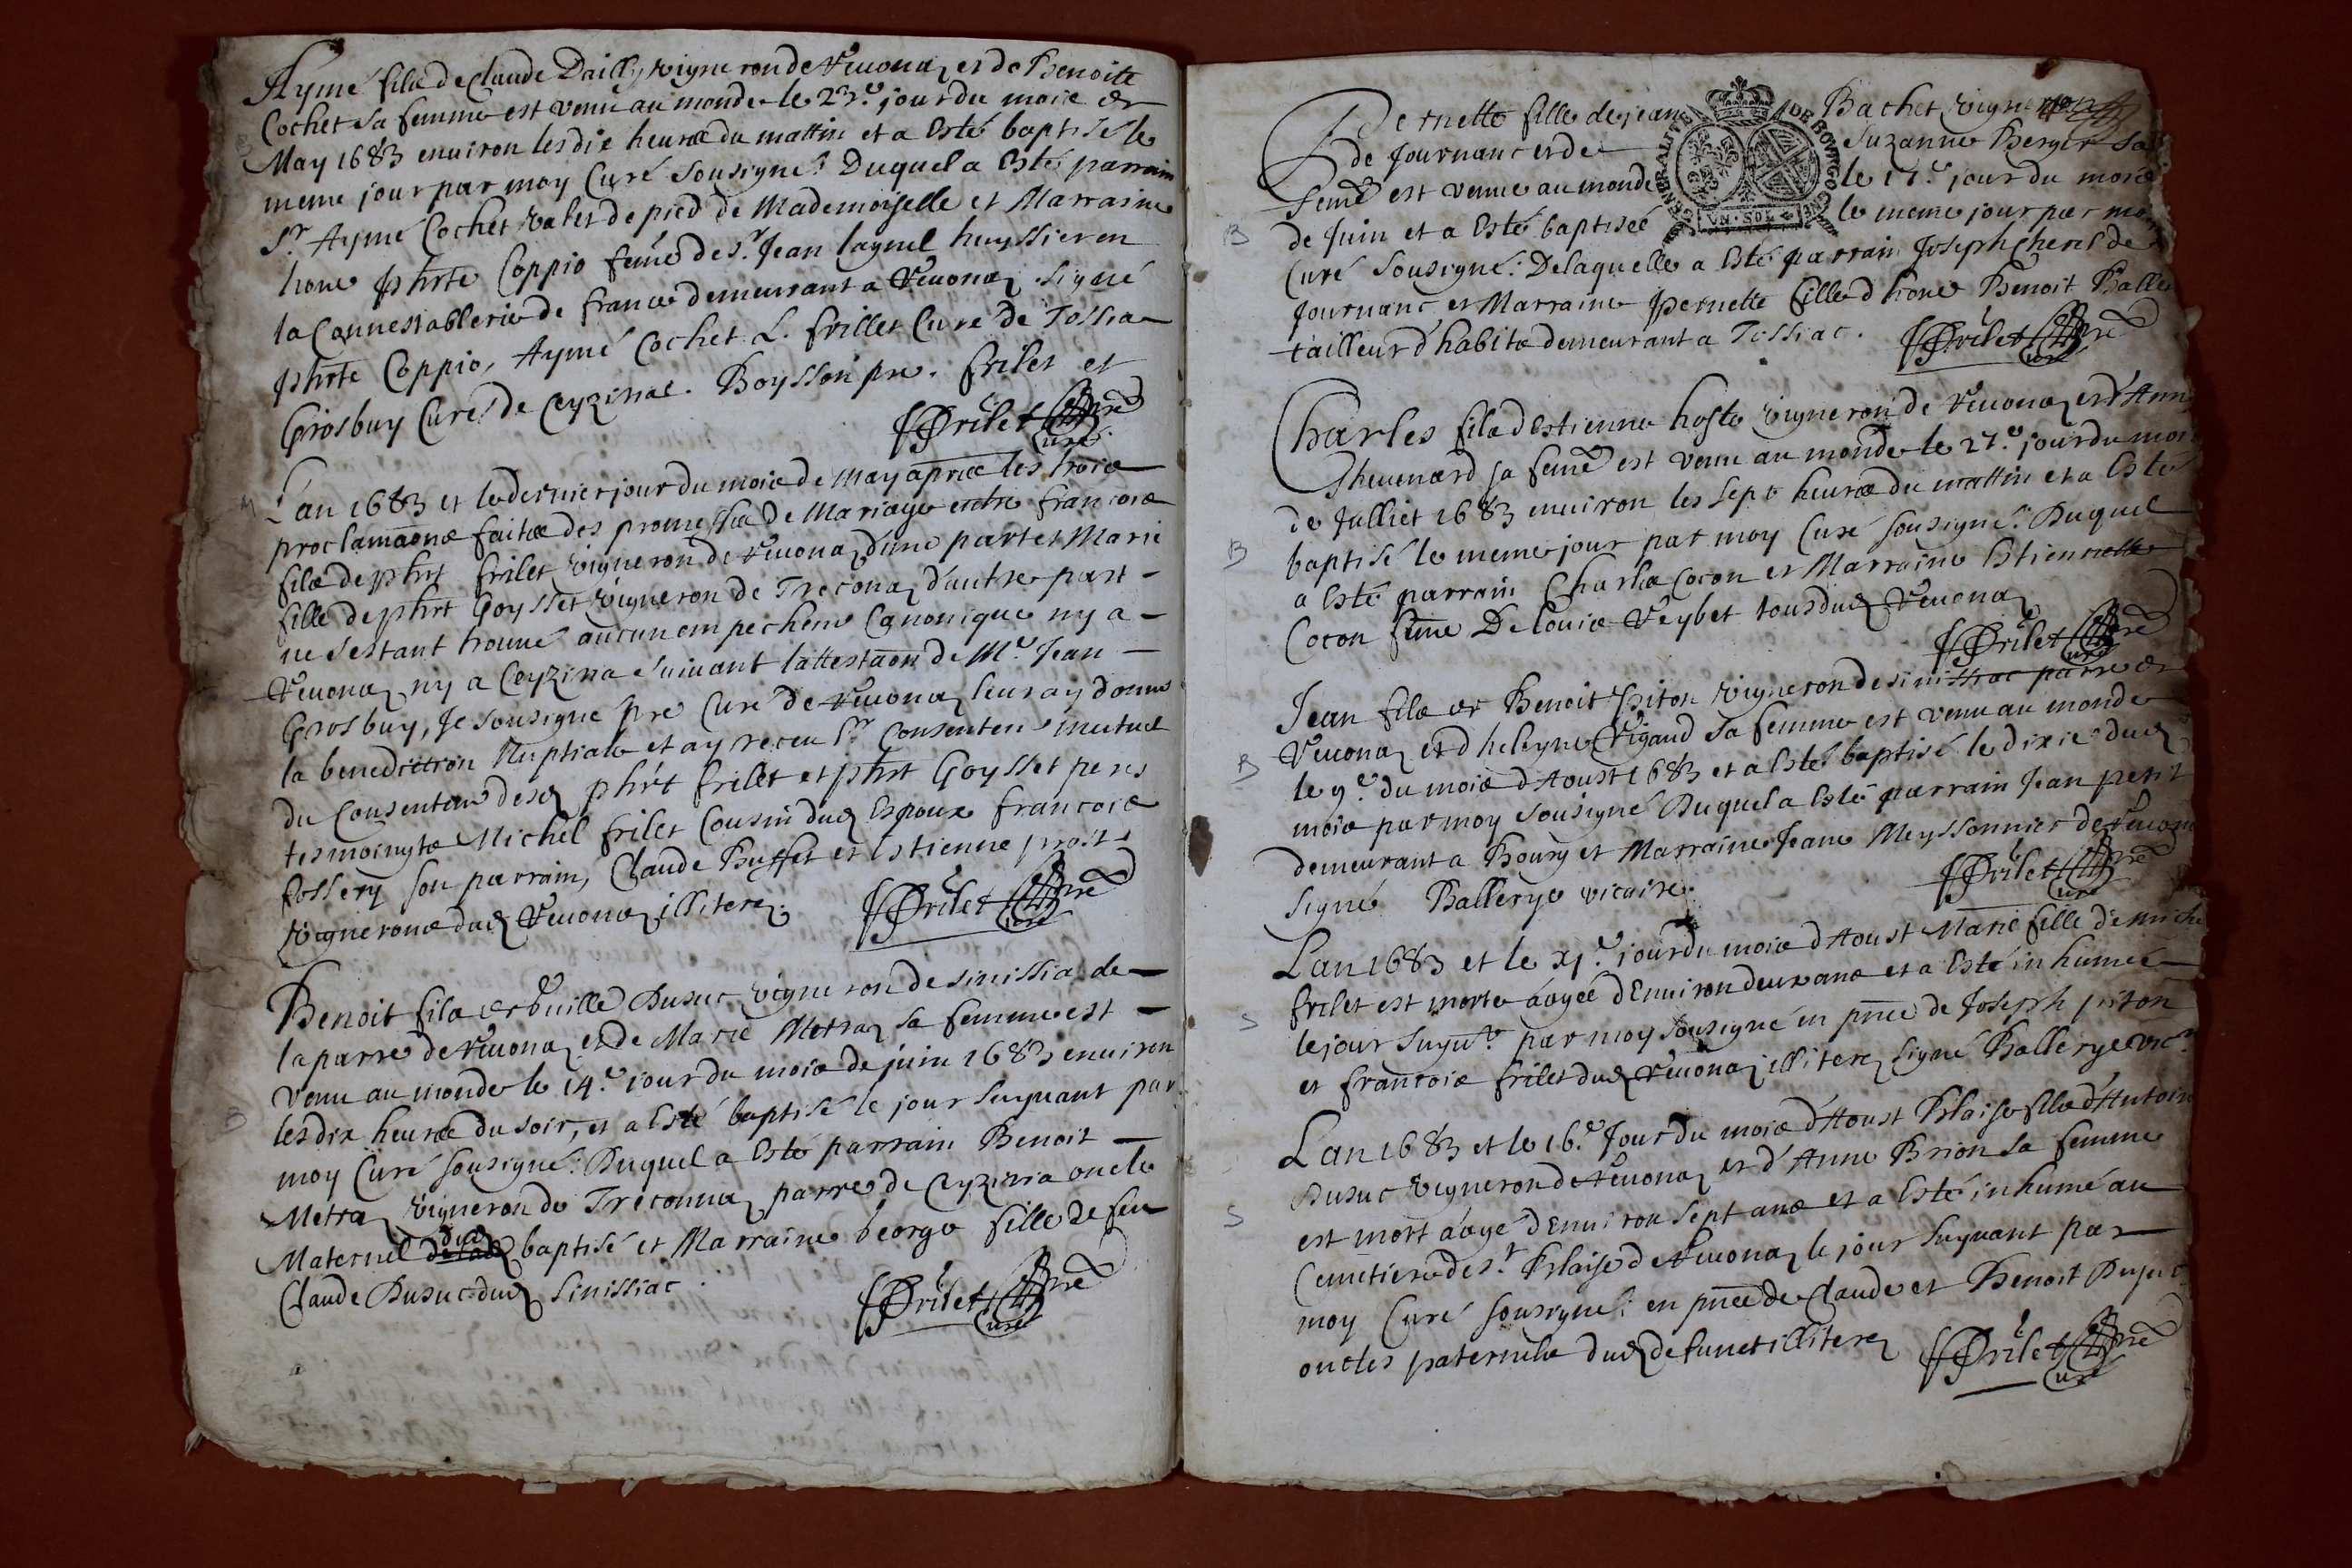 Aymé fils de Claude Dailly vigneron de Reuona et de Benoite
Cochet sa femme est venu au monde le 23.e jour du mois de
B
May 1683 enuiron les dix heures du mattin et a Esté baptisé le
meme jour par moy Curé sousigné: Duquel a Esté parrain
Sr. Aymé Cochet valet de pied de Mademoiselle et Marraine
hone Phrte Coppio feme de Sr. Jean laynel huyssier en
la Connestablerie de france demeurant a Reuona signé
Phrte Coppio, Aymé Cochet L. frillet Curé de Tossia
Grosbuy Curé de Ceyziriat. Boysson pre. frilet et
FFrilet pre
Curé
M
L'an 1683 et le dernier jour du mois de may apres les trois
proclamaons faites des promesses de Mariage entre francois
fils de phrt frilet vigneron de Reuona d'une part et Marie
fille de phrt Goysset vigneron de Trecona d'autre part
ne s'estant trouué aucun empecheme Canonique ny a
Reuona ny a Ceyziria suiuant l'attestaon de Mr. Jean
Grosbuy, Je sousigné pre Curé de Reuona leur ay donné
la benediction Nuptiale et ay receu lr Consenteme mutuel
du Consenteme desd phrt frilet et phrt Goysset peres
tesmoings Michel frilet Cousin dud Espoux francois
fossery son parrain, Claude Buffet et Estienne prost
vignerons dud Reuona illiterez.
FFrilet pre
Curé
Benoit fils de Guille Dusuc vigneron de sinissia de
la parre de Reuona et de Marie Metra sa femme est
venu au monde le 14.e jour du mois de juin 1683 enuiron
B
les dix heures du soir, et a Esté baptisé le jour suyuant par
moy Curé sousigné: Duquel a Esté parrain Benoit
Metra vigneron de Treconna parre de Ceyziria oncle
Maternel dud baptisé et Marraine George fille de feu
Claude Dusuc dud Sinissiac.
FFrilet pre
Curé
Pernette fille de jean Bachet vigneron
de Journanc et de Suzanne Berger sa
feme est venue au monde le 17.e jour du mois
B
de Juin et a Esté baptiseé le meme jour par moy
GENERALITE DE BOVRGOGNE
VN·SOL
Curé sousigné: Delaquelle a Esté parrain Joseph Cherel de
Journanc et Marraine Pernette fille d hone Benoit Balle
tailleur d'habits demeurant a Tossiac.
FFrilet pre
Curé
Charles fils d'Estienne hoste vigneron de Reuona et d'Anne
Theuenard sa feme est venu au monde le 27.e jour du mois
de Julliet 1683 enuiron les sept heures du mattin et a Esté
B
baptisé le meme jour par moy Curé sousigné: Duquel
a Esté parrain Charles Cocon et Marraine Estiennette
Cocon feme De Louis Veybet tous dud Reuona
FFrilet pre
Curé
Jean fils de Benoit Piton vigneron de sinissiac parre de
Reuona et d'heleyne Rigaud sa femme est venu au monde
B
le 9.e du mois d'Aoust 1683 et a Esté baptisé le dixie dud
mois par moy sousigné Duquel a Esté parrain Jean petit
demeurant a Bourg et Marraine Jeane Meyssonnier de Reuona
Signé Ballerye vicaire.
FFrilet pre
Curé
L'an 1683 et le xj.e jour du mois d'Aoust Marie fille de miche
frilet est morte aageé d'Enuiron deux ans et a Esté inhumeé
S
le jour suyut par moy sousigné en pnce de Joseph piton
et francois frilet dud Reuona illiterez signé Ballerye vicr.
L'an 1683 et le 16.e Jour du mois d'Aoust Blaise fils d'Antoine
Dusuc vigneron de Reuona et d'Anne Brion sa femme
S
est mort aagé d'Enuiron sept ans et a Esté inhumé au
Cemetiere de St. Blaise de Reuona le jour suyuant par
moy Curé sousigné: en pnce de Claude et Benoit Dusuc
oncles paternels dud defunct illiterez
FFrilet pre
Curé